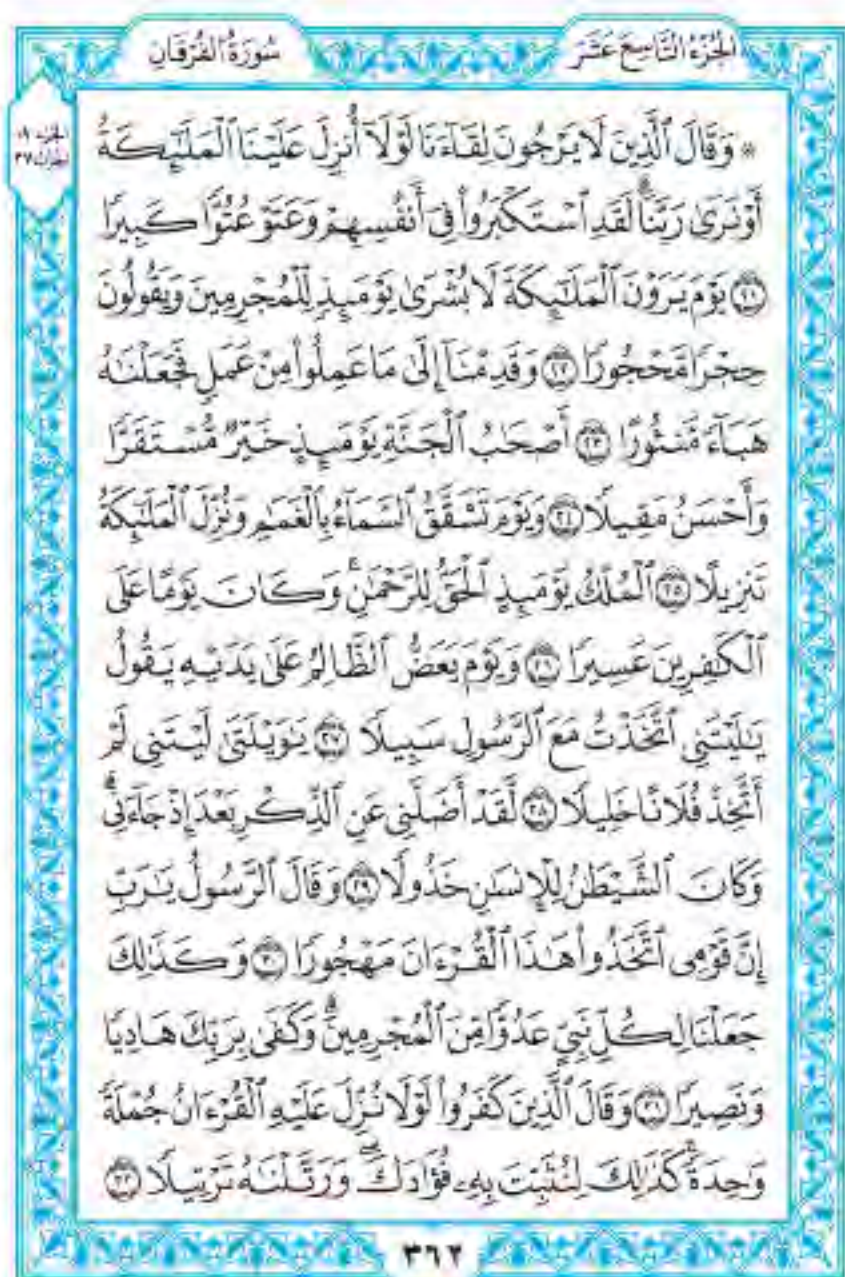 الجُزْءُ التَّاسِعَ عَشَرَ
سُورَةُ الفُرْقَانِ
۞ وَقَالَ ٱلَّذِينَ لَا يَرْجُونَ لِقَآءَنَا لَوْلَآ أُنزِلَ عَلَيْنَا ٱلْمَلَٰٓئِكَةُ
أَوْ نَرَىٰ رَبَّنَاۗ لَقَدِ ٱسْتَكْبَرُوا۟ فِىٓ أَنفُسِهِمْ وَعَتَوْ عُتُوًّا كَبِيرًا
٢١ يَوْمَ يَرَوْنَ ٱلْمَلَٰٓئِكَةَ لَا بُشْرَىٰ يَوْمَئِذٍ لِّلْمُجْرِمِينَ وَيَقُولُونَ
حِجْرًا مَّحْجُورًا ٢٢ وَقَدِمْنَآ إِلَىٰ مَا عَمِلُوا۟ مِنْ عَمَلٍ فَجَعَلْنَٰهُ
هَبَآءً مَّنثُورًا ٢٣ أَصْحَٰبُ ٱلْجَنَّةِ يَوْمَئِذٍ خَيْرٌ مُّسْتَقَرًّا
وَأَحْسَنُ مَقِيلًا ٢٤ وَيَوْمَ تَشَقَّقُ ٱلسَّمَآءُ بِٱلْغَمَٰمِ وَنُزِّلَ ٱلْمَلَٰٓئِكَةُ
تَنزِيلًا ٢٥ ٱلْمُلْكُ يَوْمَئِذٍ ٱلْحَقُّ لِلرَّحْمَٰنِۚ وَكَانَ يَوْمًا عَلَى
ٱلْكَٰفِرِينَ عَسِيرًا ٢٦ وَيَوْمَ يَعَضُّ ٱلظَّالِمُ عَلَىٰ يَدَيْهِ يَقُولُ
يَٰلَيْتَنِى ٱتَّخَذْتُ مَعَ ٱلرَّسُولِ سَبِيلًا ٢٧ يَٰوَيْلَتَىٰ لَيْتَنِى لَمْ
أَتَّخِذْ فُلَانًا خَلِيلًا ٢٨ لَّقَدْ أَضَلَّنِى عَنِ ٱلذِّكْرِ بَعْدَ إِذْ جَآءَنِىۗ
وَكَانَ ٱلشَّيْطَٰنُ لِلْإِنسَٰنِ خَذُولًا ٢٩ وَقَالَ ٱلرَّسُولُ يَٰرَبِّ
إِنَّ قَوْمِى ٱتَّخَذُوا۟ هَٰذَا ٱلْقُرْءَانَ مَهْجُورًا ٣٠ وَكَذَٰلِكَ
جَعَلْنَا لِكُلِّ نَبِىٍّ عَدُوًّا مِّنَ ٱلْمُجْرِمِينَۗ وَكَفَىٰ بِرَبِّكَ هَادِيًا
وَنَصِيرًا ٣١ وَقَالَ ٱلَّذِينَ كَفَرُوا۟ لَوْلَا نُزِّلَ عَلَيْهِ ٱلْقُرْءَانُ جُمْلَةً
وَٰحِدَةًۚ كَذَٰلِكَ لِنُثَبِّتَ بِهِۦ فُؤَادَكَۖ وَرَتَّلْنَٰهُ تَرْتِيلًا ٣٢
٣٦٢